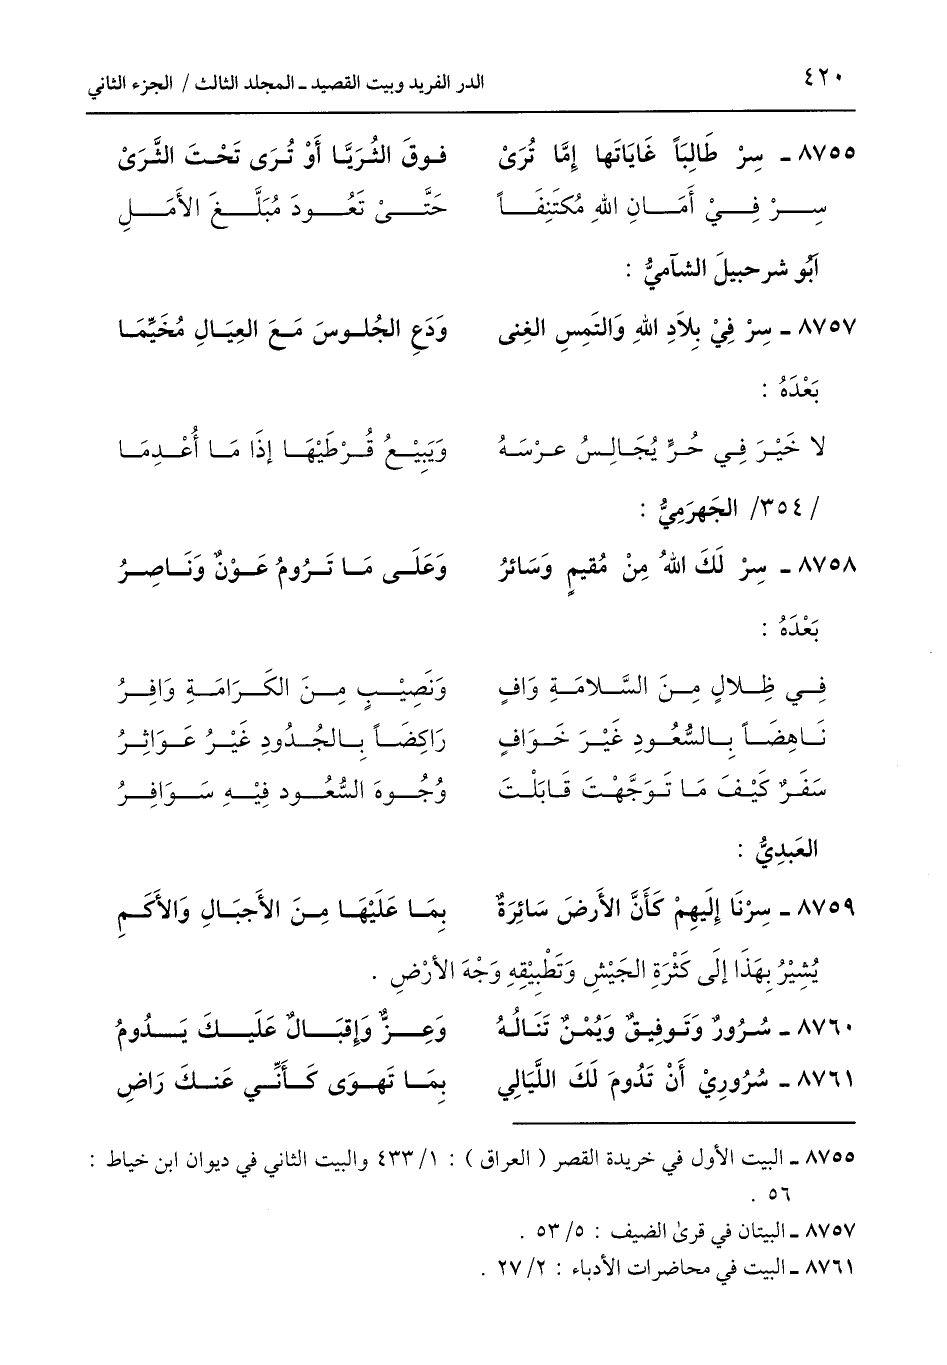 ٤٢٠ الدر الفريد وبيت القصيد ـ المجلد الثالث / الجزء الثاني
٨٧٥٥ ـ سِرْ طَالِبَاً غَايَاتَها إمَّا تُرَىْ فوقَ الثُريَّا أَوْ تُرَى تَحْتَ الثَّرَىْ
سِرْ فِيْ أَمَانِ اللهِ مُكتَنِفَاً حَتَّىْ تَعُودَ مُبَلَّغَ الأَمَلِ
أَبُو شرحبيلَ الشآميُّ :
٨٧٥٧ ـ سِرْ فِيْ بِلَادِ اللهِ وَالتَمِسِ الغِنى وَدَعِ الجُلوسَ مَعَ العِيَالِ مُخَيِّمَا
بَعْدَهُ :
لا خَيْرَ فِي حُرٍّ يُجَالِسُ عرْسَهُ وَيَبِيْعُ قُرْطَيْهَا إِذَا مَا أُعْدِمَا
/ ٣٥٤/ الجَهرَمِيُّ :
٨٧٥٨ ـ سِرْ لَكَ اللهُ مِنْ مُقيمٍ وَسَائرُ وَعَلَى مَا تَرُومُ عَوْنٌ وَنَاصِرُ
بَعْدَهُ :
فِي ظِلالٍ مِنَ السَّلامَةِ وَافٍ وَنَصِيْبٍ مِنَ الكَرَامَةِ وَافِرُ
نَاهِضَاً بِالسُّعُودِ غَيْرَ خَوَافٍ رَاكِضَاً بِالجُدُودِ غَيْرُ عَوَاثِرُ
سَفَرٌ كَيْفَ مَا تَوَجَّهْتَ قَابَلْتَ وُجُوهَ السُّعُودِ فِيْهِ سَوَافِرُ
العَبدِيُّ :
٨٧٥٩ ـ سِرْنَا إِلَيهِمْ كَأَنَّ الأَرضَ سَائِرَةٌ بِمَا عَلَيْهَا مِنَ الأَجبَالِ وَالأَكَمِ
يُشِيْرُ بِهَذَا إِلَى كَثْرَةِ الجَيْشِ وَتَطْبِيْقِهِ وَجْهَ الأَرْضِ .
٨٧٦٠ ـ سُرُورٌ وَتَوفِيقٌ وَيُمْنٌ تَنَالُهُ وَعِزٌّ وَإِقبَالٌ عَلَيكَ يَدُومُ
٨٧٦١ ـ سُرُورِيْ أَنْ تَدُومَ لَكَ اللَّيَالِي بِمَا تَهوَى كَأَنِّي عَنكَ رَاضِ
٨٧٥٥ ـ البيت الأول في خريدة القصر ( العراق ) : ٤٣٣/١ والبيت الثاني في ديوان ابن خياط :
٥٦ .
٨٧٥٧ ـ البيتان في قرىٰ الضيف : ٥٣/٥ .
٨٧٦١ ـ البيت في محاضرات الأدباء : ٢٧/٢ .